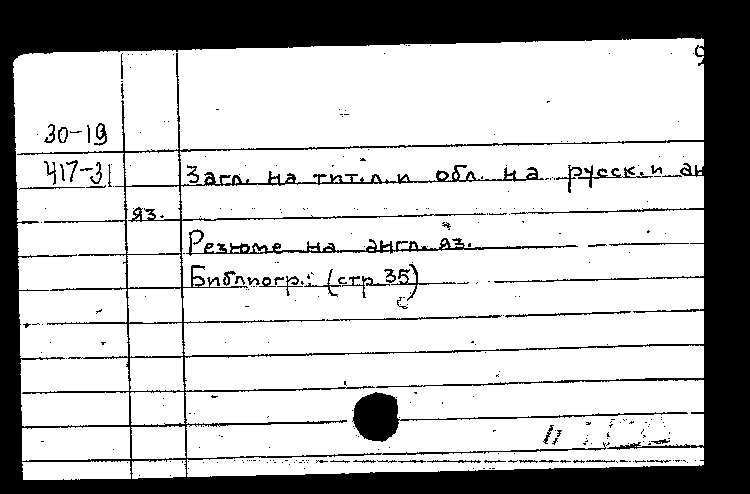 30-19
417-31 Загл. на тит.л. и обл. на русск. и ан
яз.
Резюме на англ. яз.
Библиогр.: (стр 35)